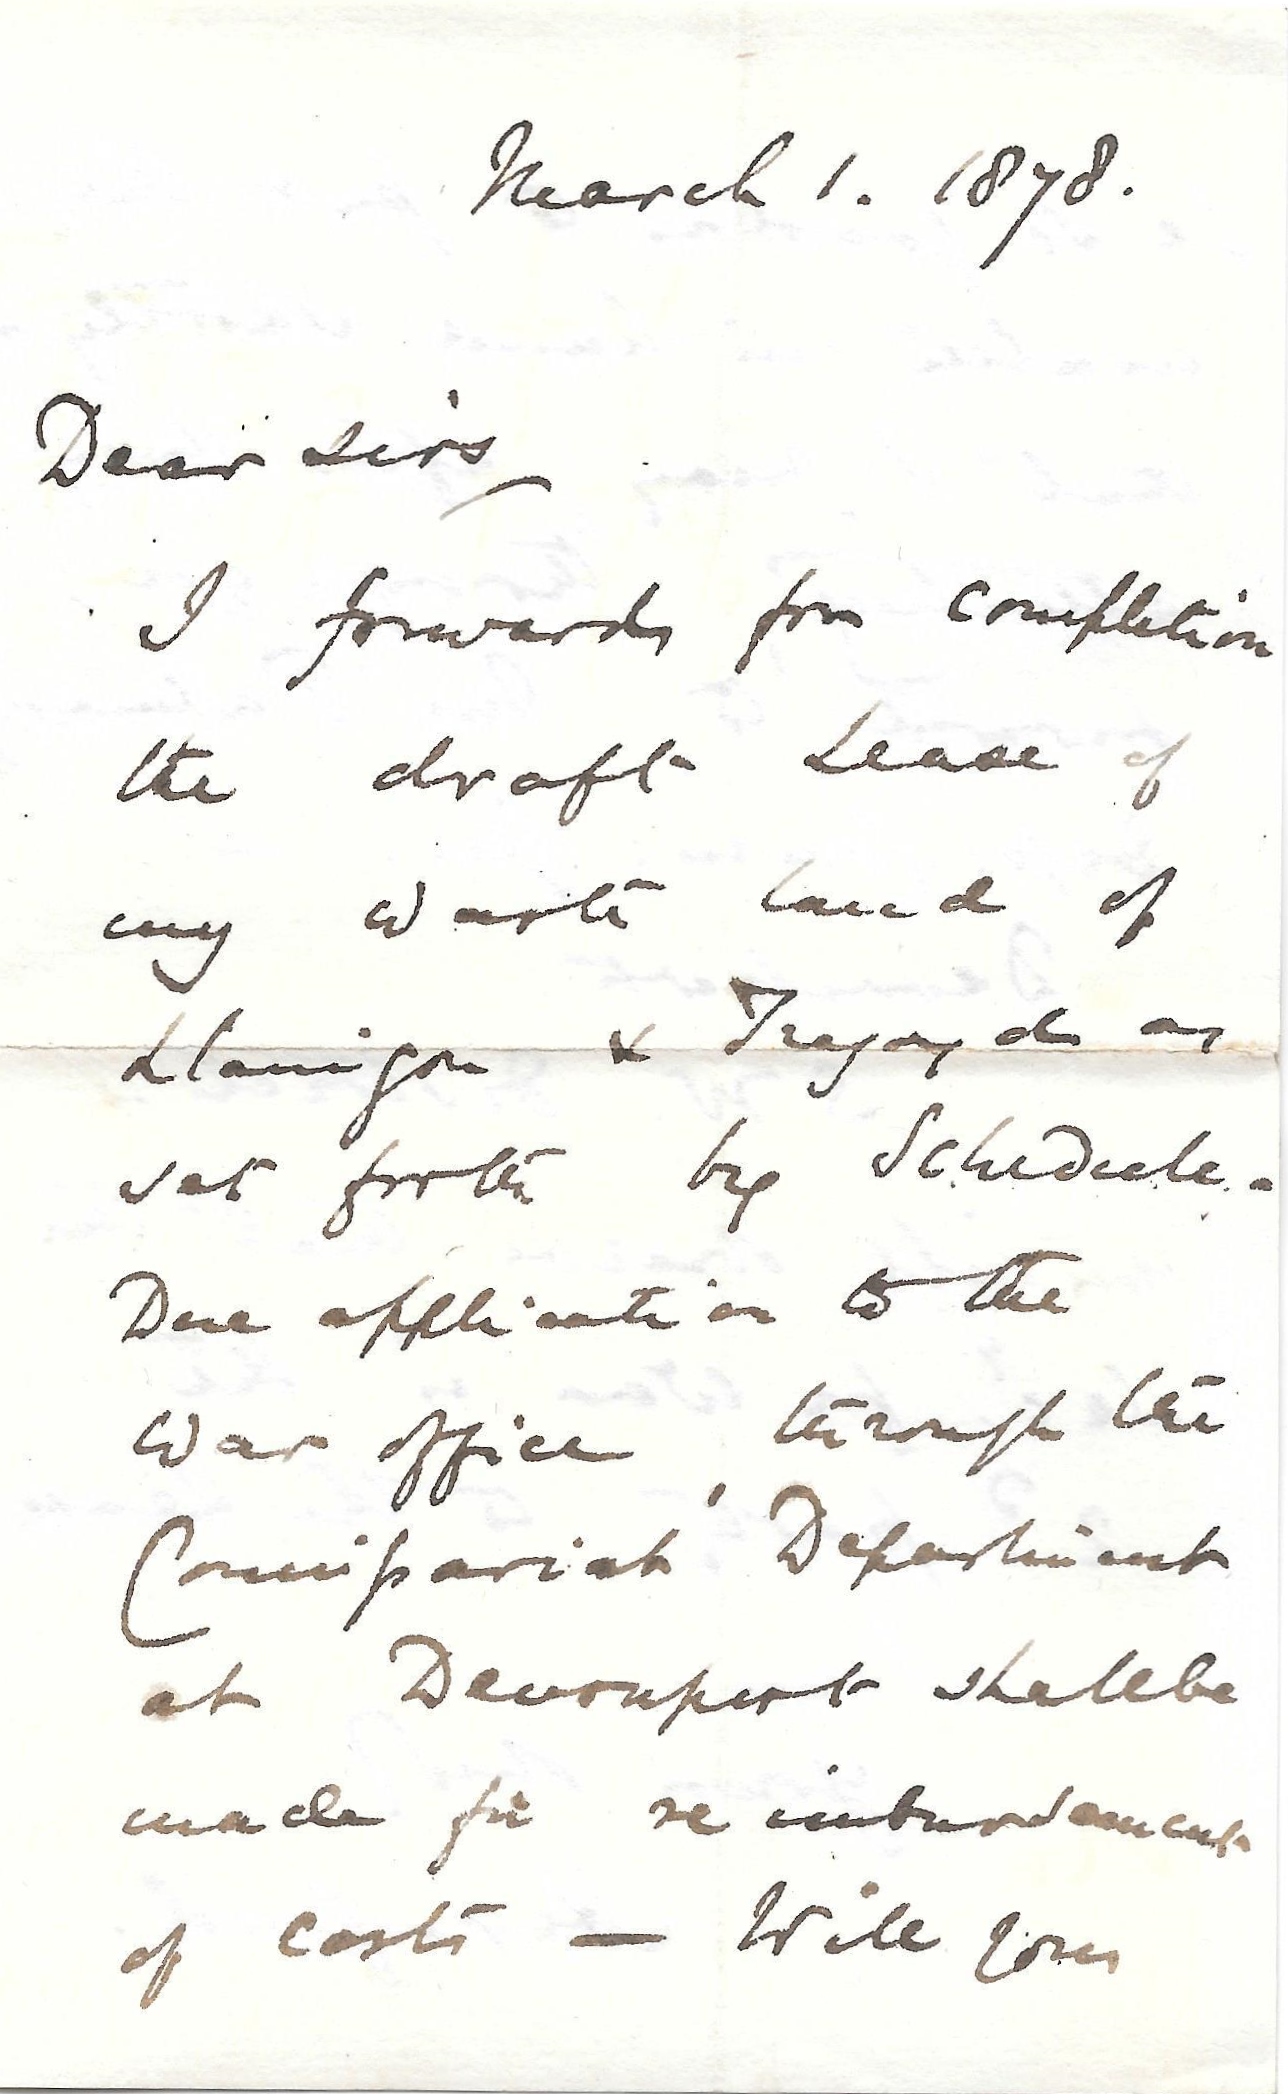 March 1. 1878.
Dear Sirs
I forward for completion
the draft Lease of
my waste land of
Llanigon & Tregoyd as
set forth by Schedule -
Due application to the
War Office, through the
Commissariat Department
at Devonport shall be
made for reimbursement
of costs — Will you